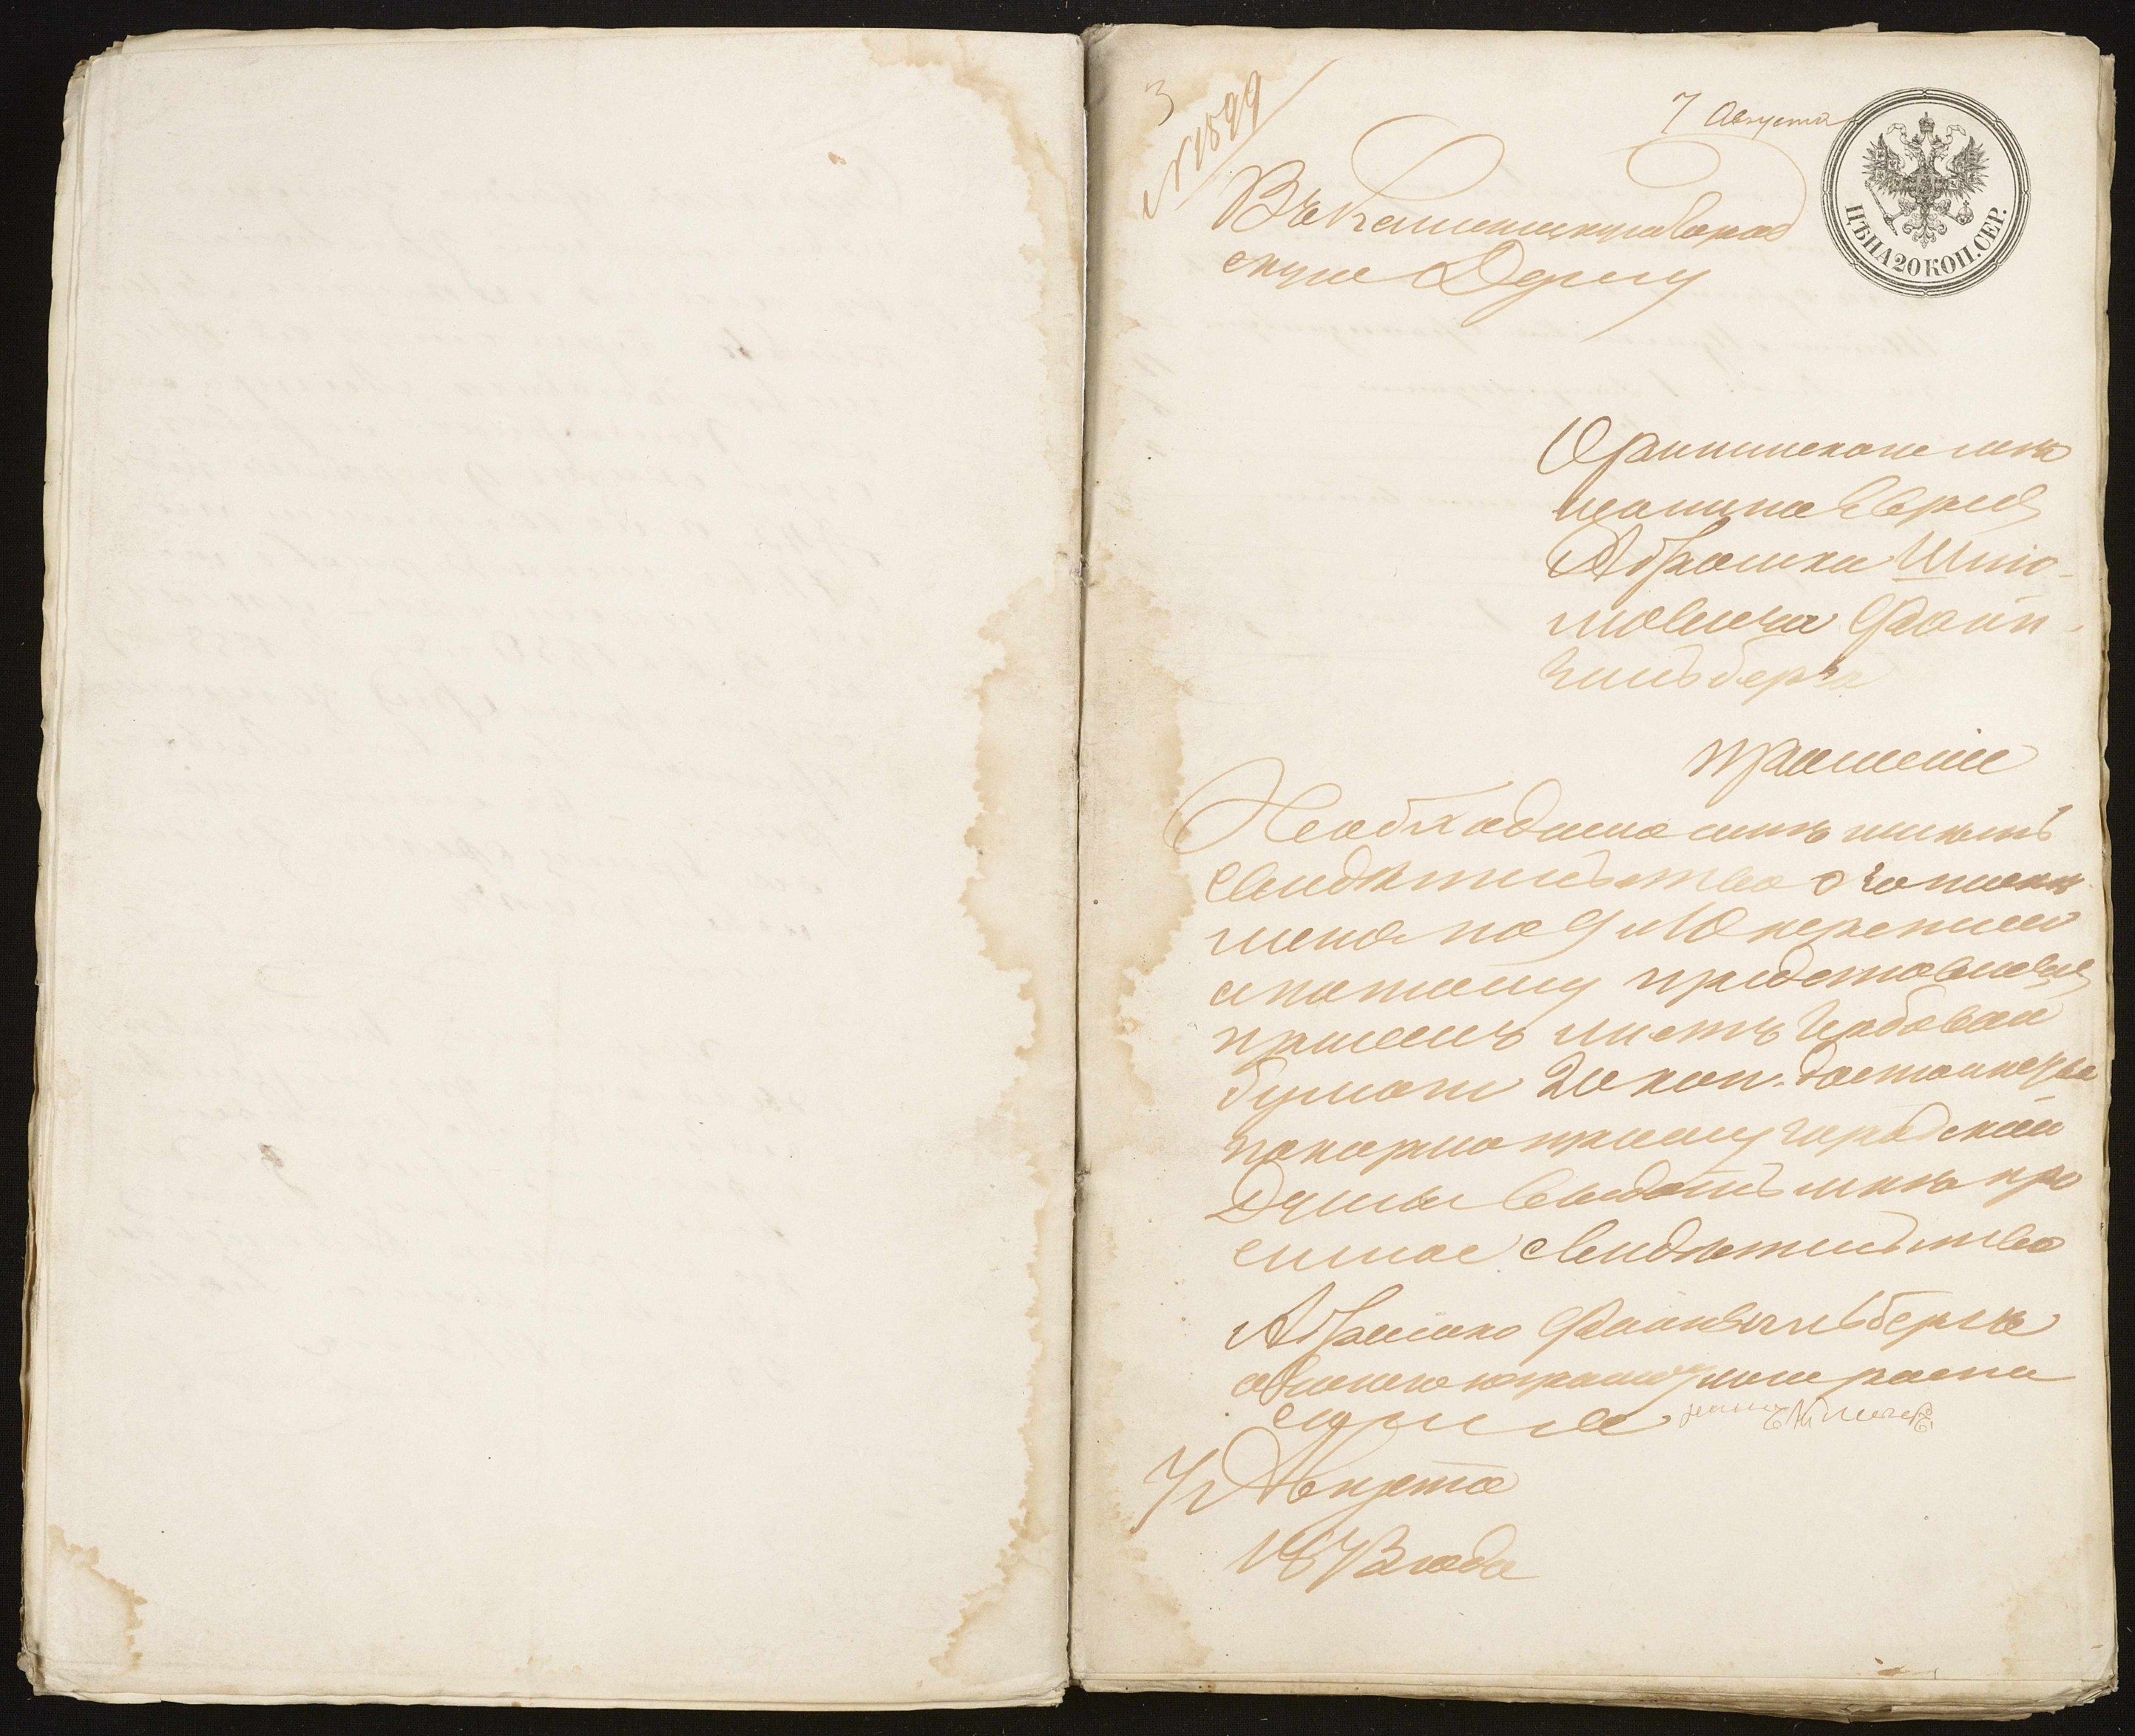 3
№ 1599
7 Августа
ЦѢНА 20 КОП. СЕР.
Въ Каменецкую Город
скую Думу
Орининскаго мѣ
щанина Еврея
Абрашка Шмю-
мовича Файн-
зильберга
прошеніе
Необходимо мнѣ имѣть
свидѣтельство о
по 9 и 10 переписи
а потому представляя
при семъ листъ гербовой
бумаги 20 коп. достоинства
покорно прошу городской
Думы выдать мнѣ про
симое свидѣтельство
Абрашко Файнзильберъ
а вместо неграмотнаго роспи
сался
7 Августа
1873 года